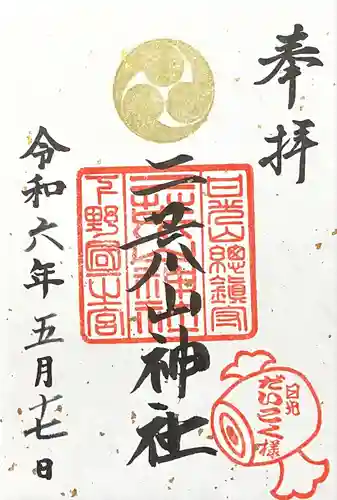 奉拝
二荒山神社
令和六年五月十七日
日光山總鎮守
二荒山神社
下野國一之宮
日光
だいこく様